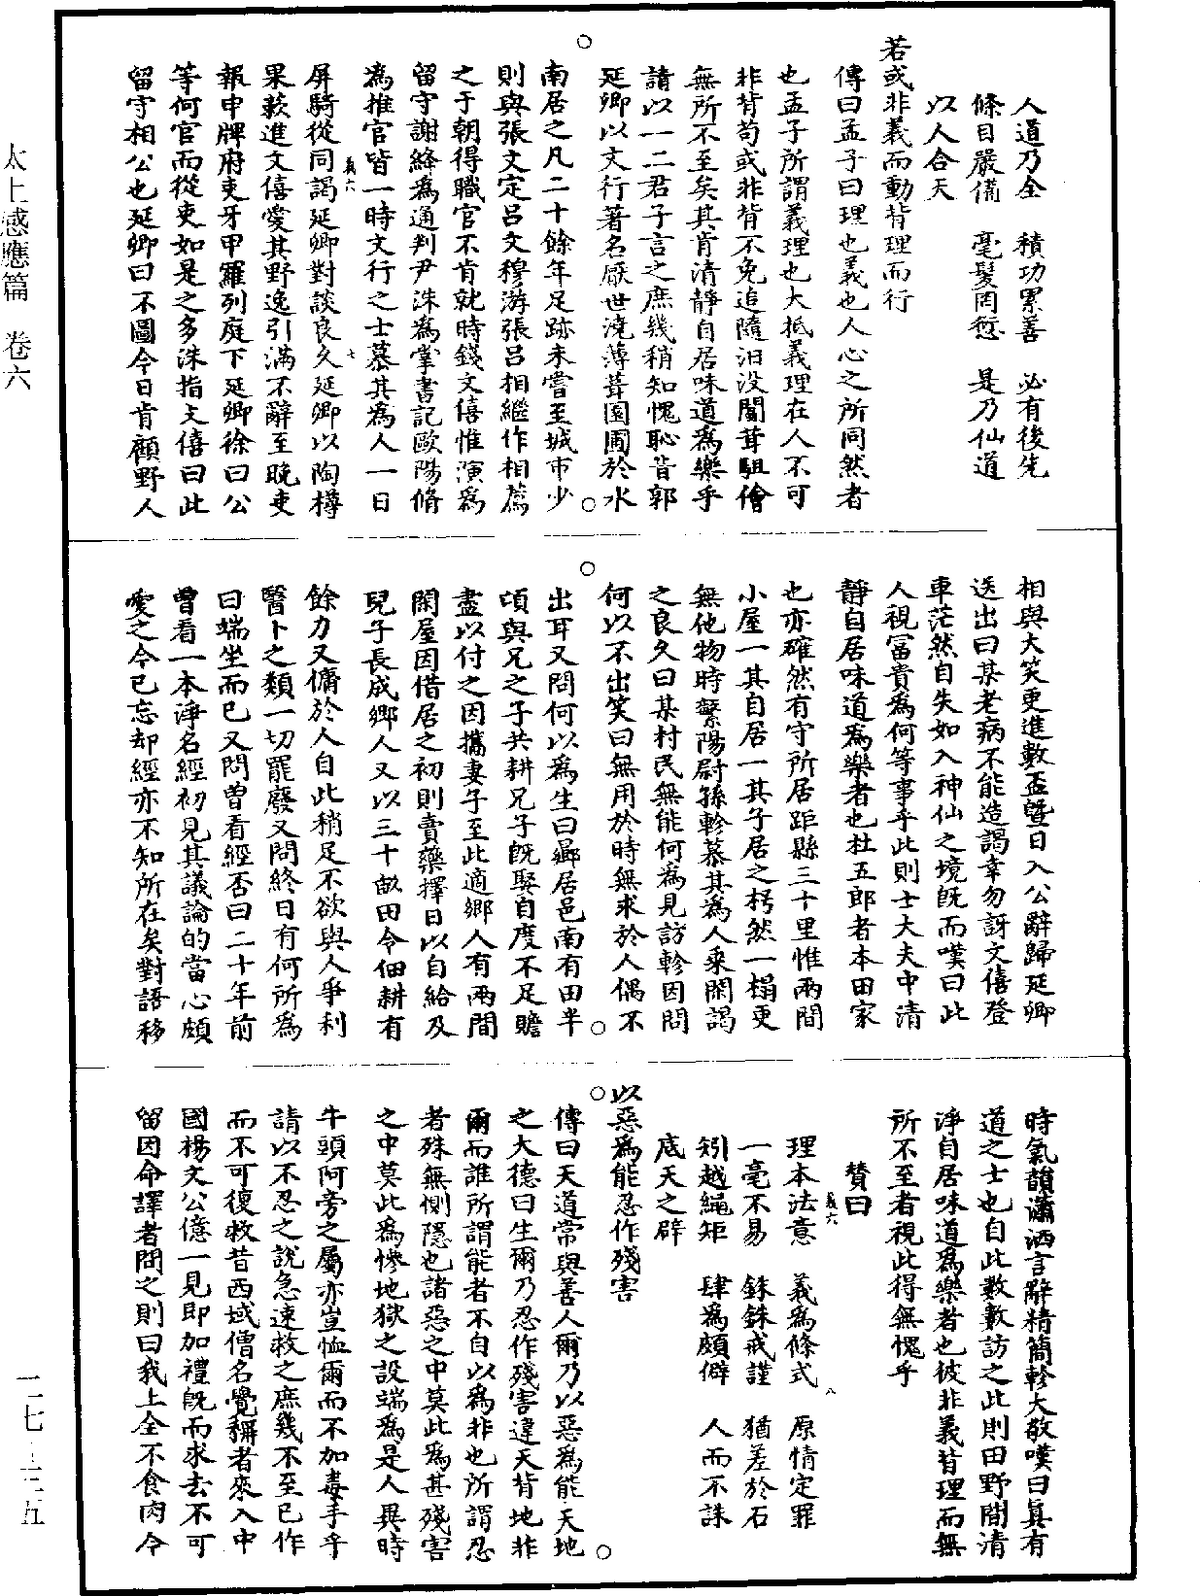 太上感應篇　卷六
人道乃全　積功累善　必有後先
條目嚴備　毫髮罔愆　是乃仙道
以人合天
若或非義而動背理而行
傳曰孟子曰理也義也人心之所同然者
也孟子所謂義理也大抵義理在人不可
非背苟或非背不免追隨汨没闒茸駔儈
無所不至矣其肯清靜自居味道為樂乎
請以一二君子言之庶幾稍知愧恥昔郭
延卿以文行著名厭世澆薄葺園圃於水
南居之凡二十餘年足跡未嘗至城市少
則與張文定呂文穆游張呂相繼作相薦
之于朝得職官不肯就時錢文僖惟演為
留守謝絳為通判尹洙為掌書記歐陽脩
為推官皆一時文行之士慕其為人一日
義六
七
屏騎從同謁延卿對談良久延卿以陶樽
果蓛進文僖愛其野逸引滿不辭至晚吏
報申牌府吏牙甲羅列庭下延卿徐曰公
等何官而從吏如是之多洙指文僖曰此
留守相公也延卿曰不圖今日肯顧野人
相與大笑更進數盃曁日入公辭歸延卿
送出曰某老病不能造謁幸勿訝文僖登
車茫然自失如入神仙之境旣而嘆曰此
人視冨貴為何等事乎此則士大夫中清
靜自居味道為樂者也杜五郎者本田家
也亦確然有守所居距縣三十里惟兩間
小屋一其自居一其子居之枵然一榻更
無他物時黎陽尉孫軫慕其為人乘閑謁
之良久曰某村民無能何為見訪軫因問
何以不出笑曰無用於時無求於人偶不
出耳又問何以為生曰鄉居邑南有田半
頃與兄之子共耕兄子旣娶自度不足贍
盡以付之因攜妻子至此適鄉人有兩間
閑屋因借居之初則賣藥擇日以自給及
兒子長成鄉人又以三十畝田令佃耕有
餘力又傭於人自此稍足不欲與人爭利
醫卜之類一切罷廢又問終日有何所為
曰端坐而已又問曾看經否曰二十年前
曾看一本淨名經初見其議論的當心頗
愛之今已忘却經亦不知所在矣對語移
時氣韻瀟洒言辭精簡軫大敬嘆曰眞有
道之士也自此數數訪之此則田野間清
淨自居味道為樂者也彼非義背理而無
所不至者視此得無愧乎
贊曰
義六
八
理本法意　義為條式　原情定罪
一毫不易　銖銖戒謹　猶差於石
矧越繩矩　肆為頗僻　人而不誅
底天之辟
以惡為能忍作殘害
傳曰天道常與善人爾乃以惡為能天地
之大德曰生爾乃忍作殘害違天背地非
爾而誰所謂能者不自以為非也所謂忍
者殊無惻隱也諸惡之中莫此為甚殘害
之中莫此為慘地獄之設端為是人異時
牛頭阿旁之屬亦豈恤爾而不加毒手乎
請以不忍之說急速救之庶幾不至已作
而不可復救昔西域僧名覺稱者來入中
國楊文公億一見即加禮旣而求去不可
留因命譯者問之則曰我上全不食肉今
一二七—三五